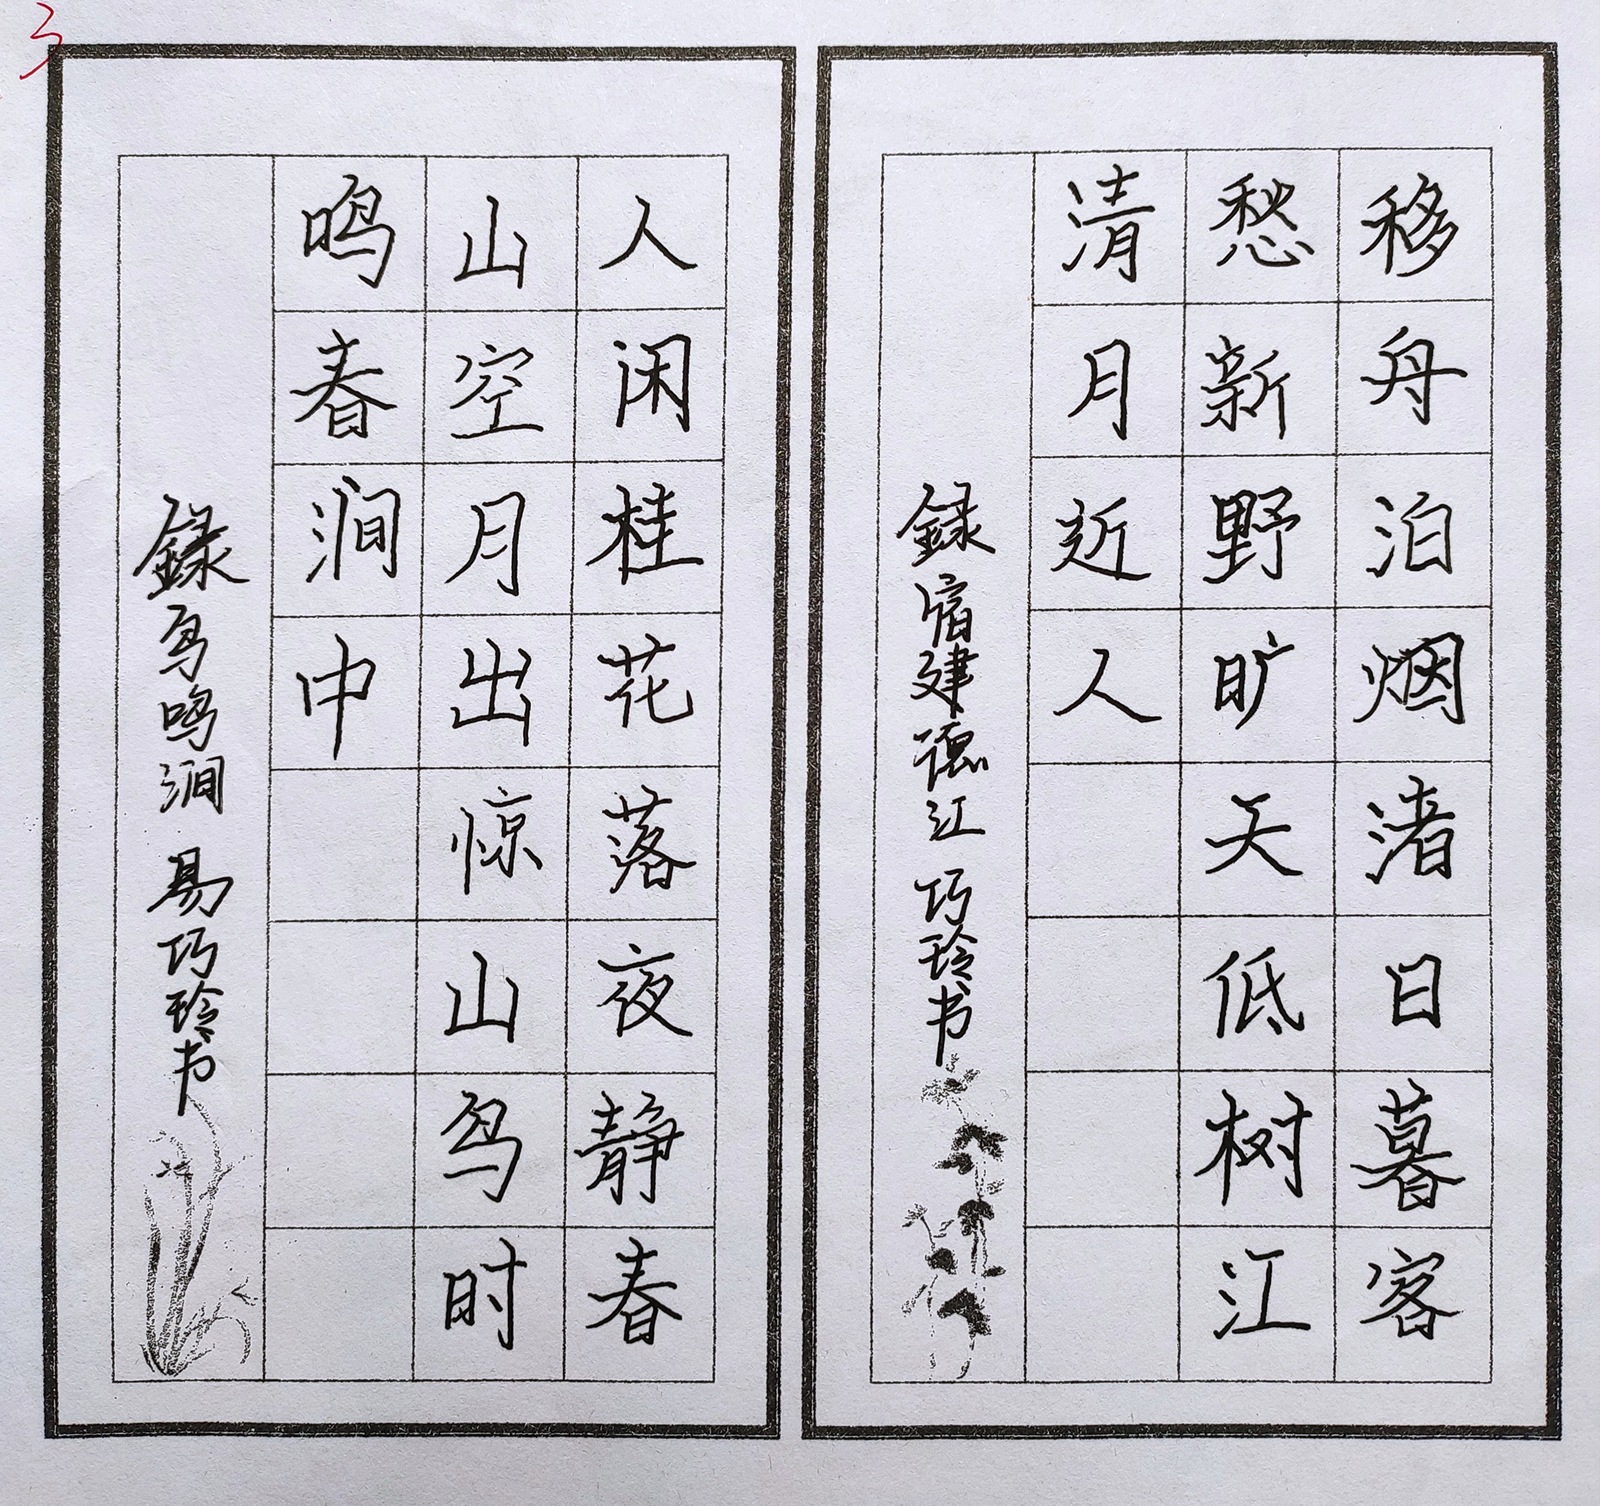 移舟泊烟渚日暮客
愁新野旷天低树江
清月近人
録宿建德江 巧玲书
人闲桂花落夜静春
山空月出惊山鸟时
鸣春涧中
録鸟鸣涧 易巧玲书